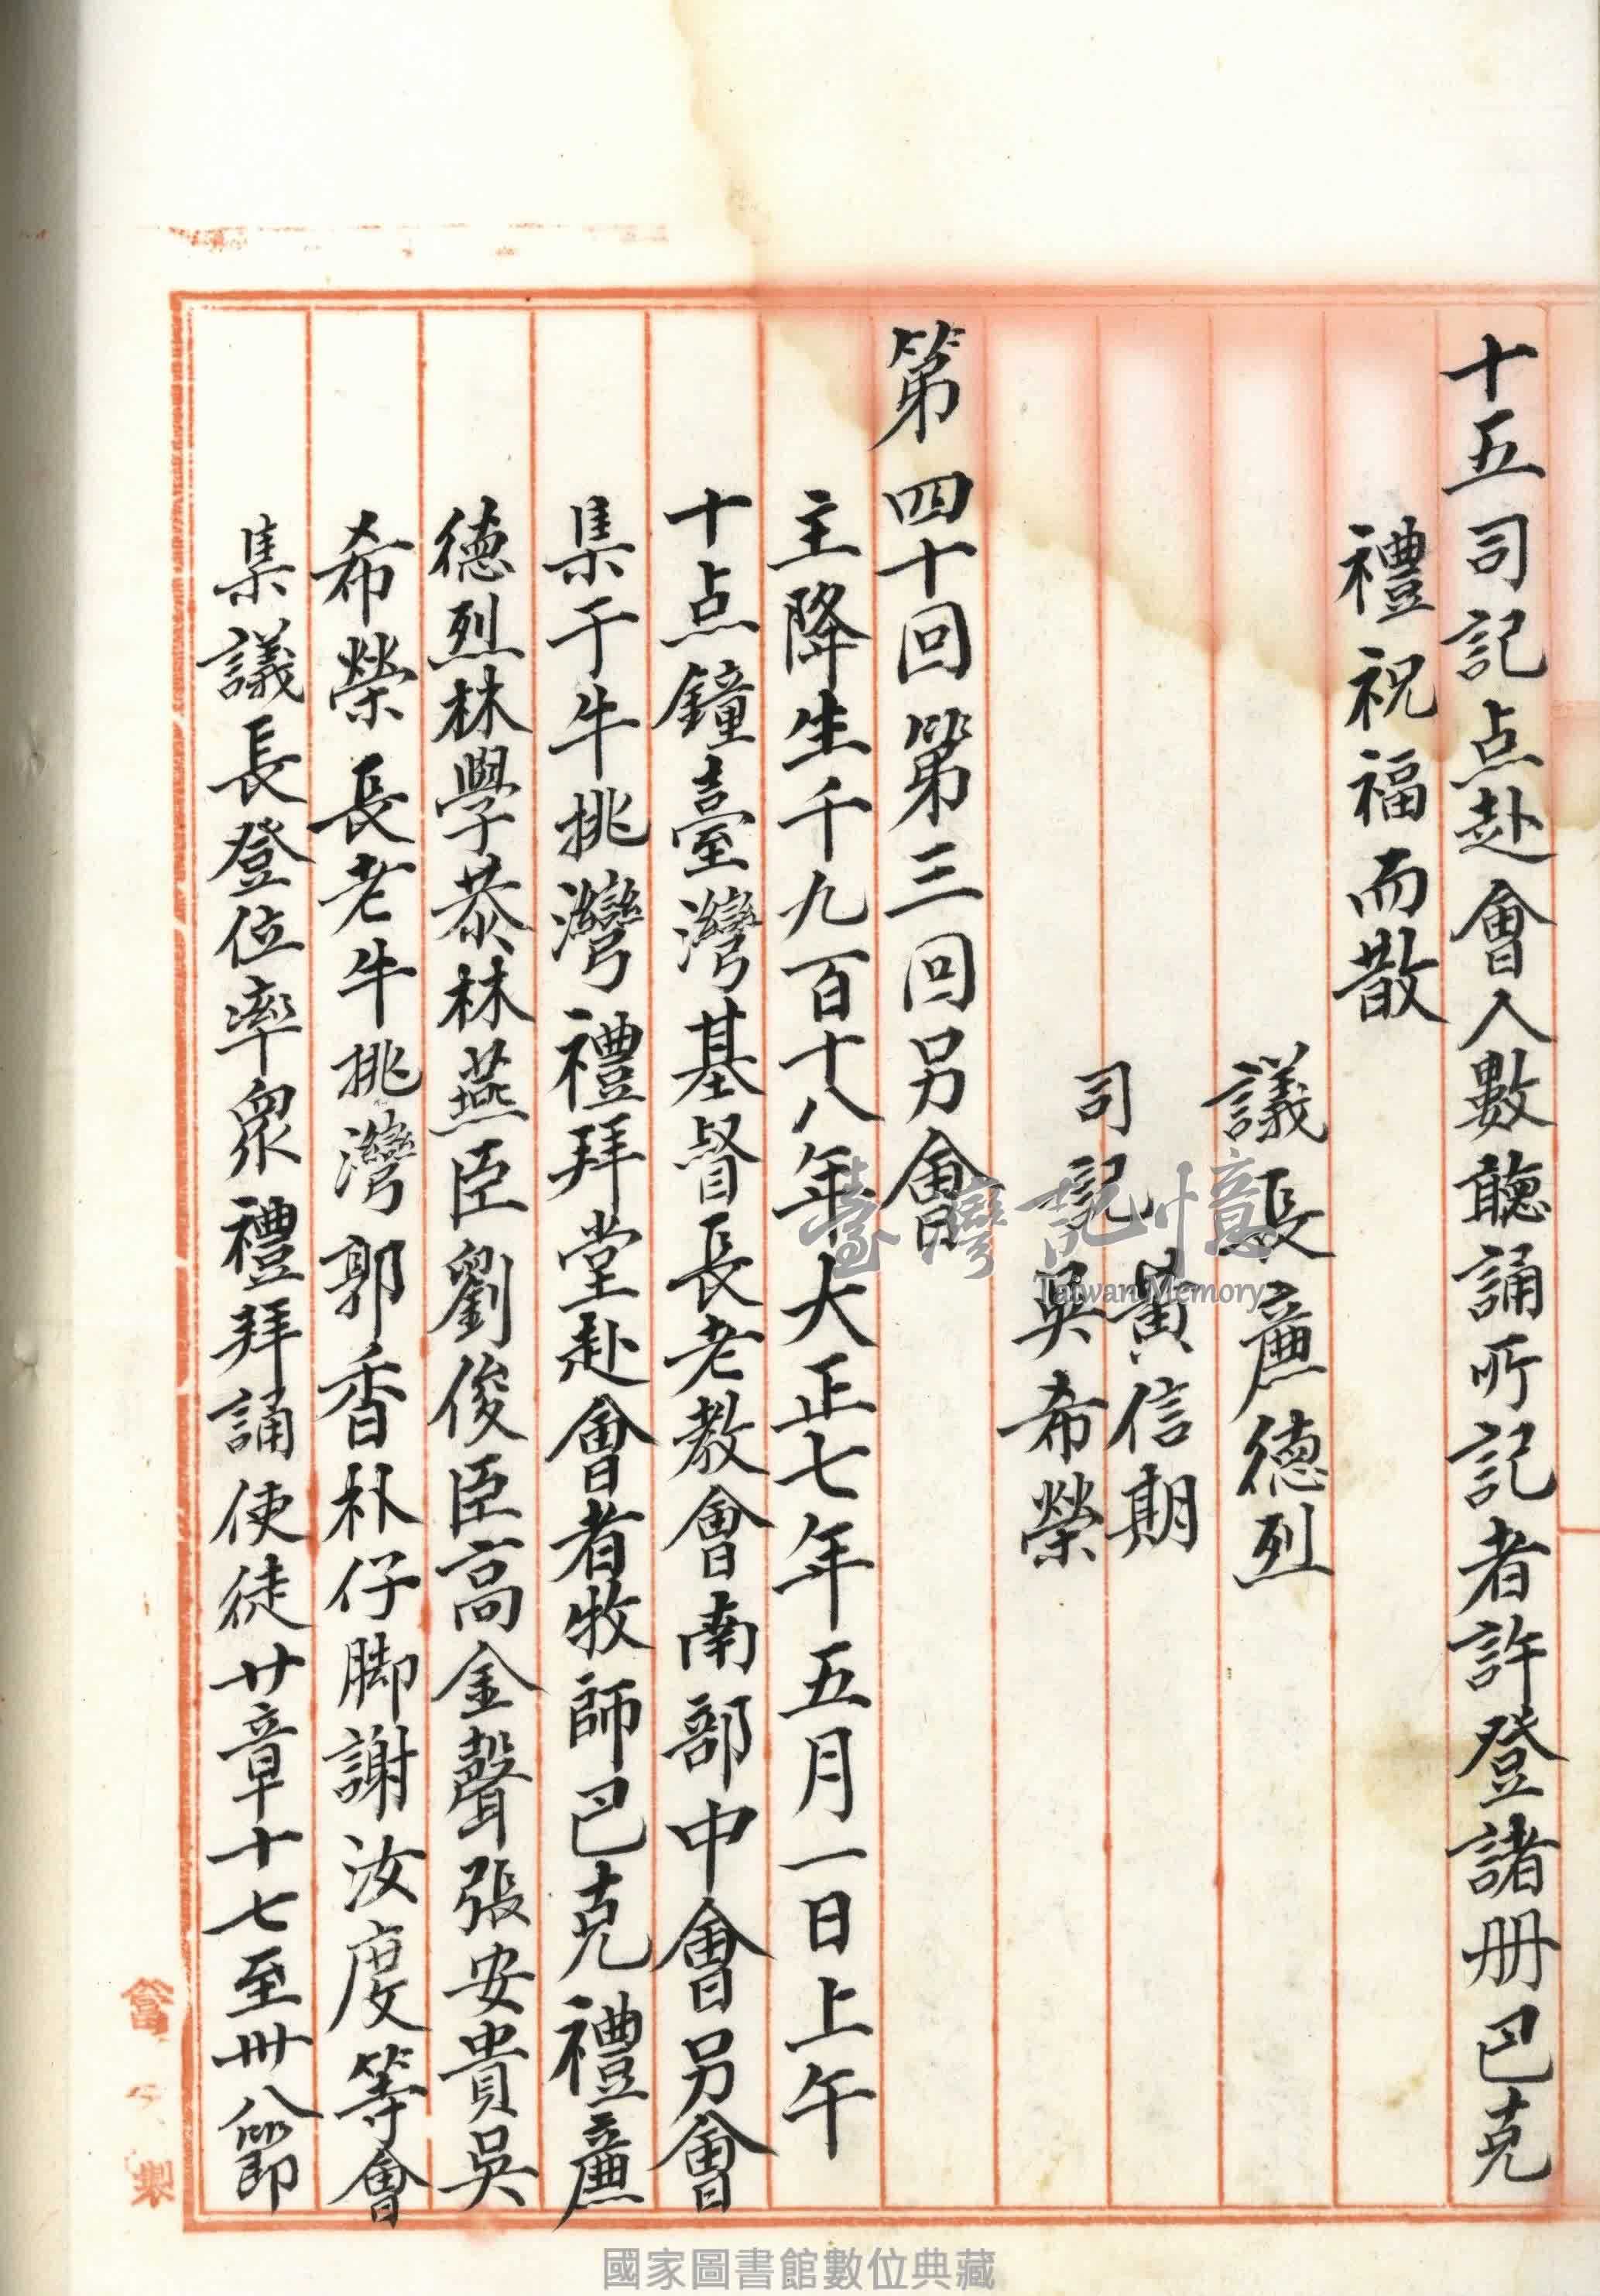 十五司記点赴會人數聽誦所記者許登諸册巴克
禮祝福而散
議長廉德烈
司記黃信期
吳希榮
第四十回第三回另會
主降生千九百十八年大正七年五月一日上午
十点鐘臺灣基督長老教會南部中會另會
集于牛挑灣禮拜堂赴會者牧師巴克禮廉
德烈林學恭林燕臣劉俊臣高金聲張安貴吳
希榮長老牛挑灣郭香朴仔脚謝汝度等會
集議長登位率眾禮拜誦使徒廿章十七至卅八節
臺灣記憶
Taiwan Memory
國家圖書館數位典藏